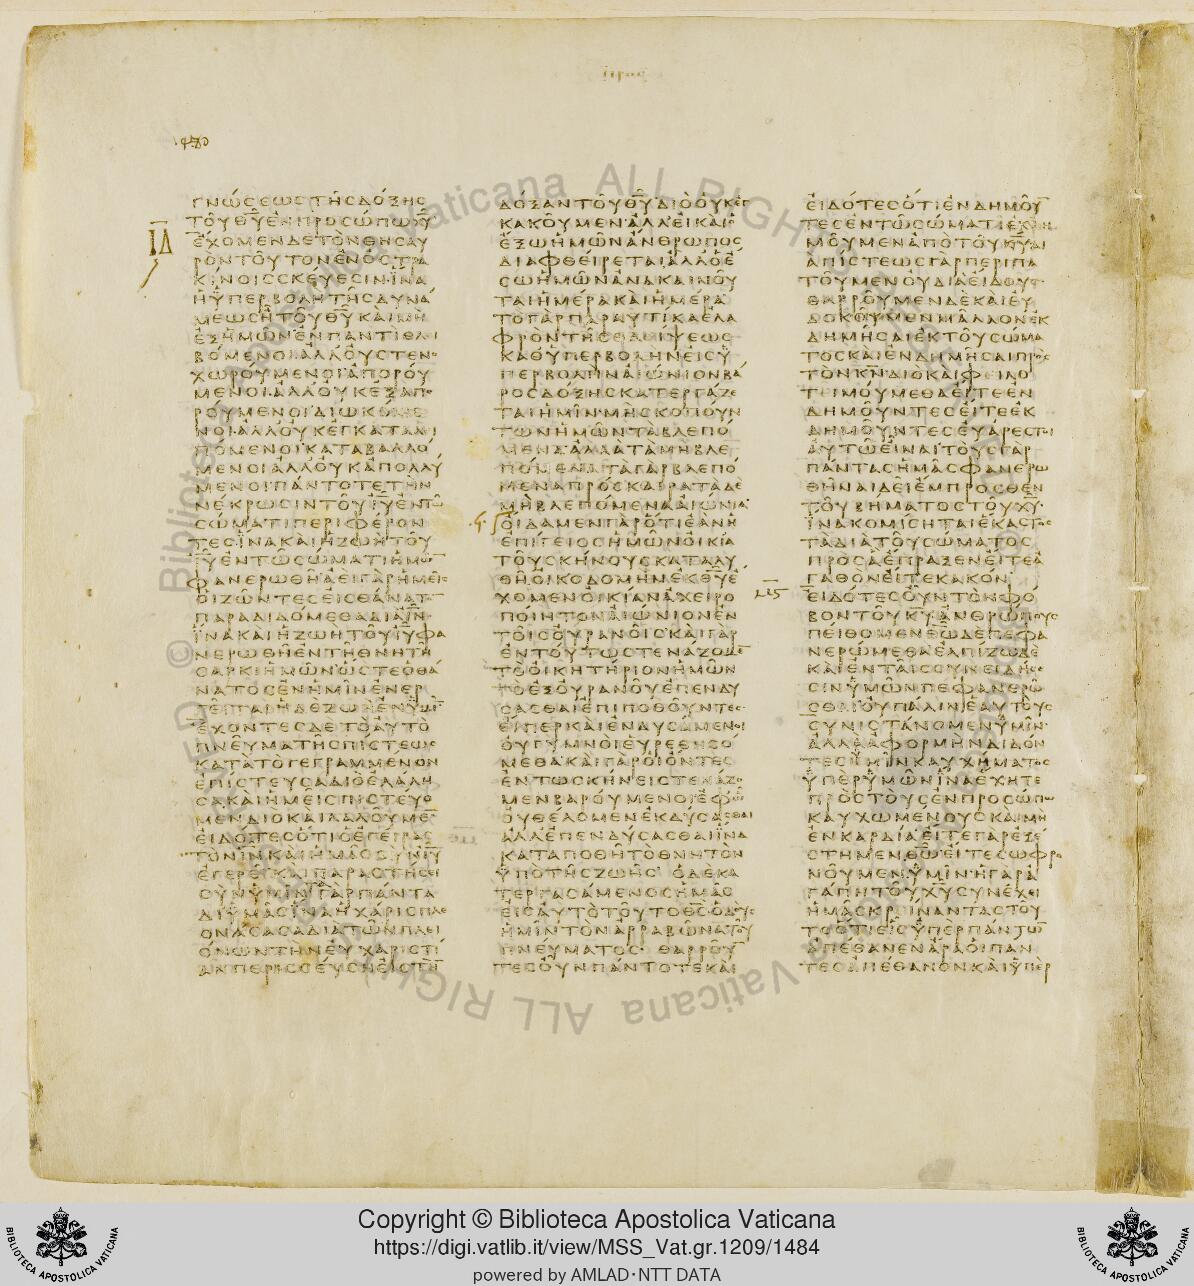 προς
ΓΝΩϹΕΩϹΤΗϹΔΟΞΗϹ
ΤΟΥΘΥΕΝΠΡΟϹΩΠΩΧΥ
ΙΔ
ΕΧΟΜΕΝΔΕΤΟΝΘΗϹΑΥ
ΡΟΝΤΟΥΤΟΝΕΝΟϹΤΡΑ
ΚΙΝΟΙϹϹΚΕΥΕϹΙΝΙΝΑ
ΗΥΠΕΡΒΟΛΗΤΗϹΔΥΝΑ
ΜΕΩϹΗΤΟΥΘΥΚΑΙΜΗ
ΕΞΗΜΩΝΕΝΠΑΝΤΙΘΛΙ
ΒΟΜΕΝΟΙΑΛΛΟΥϹΤΕΝΟ
ΧΩΡΟΥΜΕΝΟΙΑΠΟΡΟΥ
ΜΕΝΟΙΑΛΛΟΥΚΕΞΑΠΟ
ΡΟΥΜΕΝΟΙΔΙΩΚΟΜΕ
ΝΟΙΑΛΛΟΥΚΕΓΚΑΤΑΛΙ
ΠΟΜΕΝΟΙΚΑΤΑΒΑΛΛΟ
ΜΕΝΟΙΑΛΛΟΥΚΑΠΟΛΛΥ
ΜΕΝΟΙΠΑΝΤΟΤΕΤΗΝ
ΝΕΚΡΩϹΙΝΤΟΥΙΥΕΝΤΩ
ϹΩΜΑΤΙΠΕΡΙΦΕΡΟΝ
ΤΕϹΙΝΑΚΑΙΗΖΩΗΤΟΥ
ΙΥΕΝΤΩϹΩΜΑΤΙΗΜΩ
ΦΑΝΕΡΩΘΗΑΕΙΓΑΡΗΜΕΙϹ
ΟΙΖΩΝΤΕϹΕΙϹΘΑΝΑΤΟ
ΠΑΡΑΔΙΔΟΜΕΘΑΔΙΑΙΝ
ΙΝΑΚΑΙΗΖΩΗΤΟΥΙΥΦΑ
ΝΕΡΩΘΗΕΝΤΗΘΝΗΤΗ
ϹΑΡΚΙΗΜΩΝΩϹΤΕΟΘΑ
ΝΑΤΟϹΕΝΗΜΙΝΕΝΕΡ
ΓΕΙΤΑΙΗΔΕΖΩΗΕΝΥΜΙ
ΕΧΟΝΤΕϹΔΕΤΟΑΥΤΟ
ΠΝΕΥΜΑΤΗϹΠΙϹΤΕΩϹ
ΚΑΤΑΤΟΓΕΓΡΑΜΜΕΝΟΝ
ΕΠΙϹΤΕΥϹΑΔΙΟΕΛΑΛΗ
ϹΑΚΑΙΗΜΕΙϹΠΙϹΤΕΥΟ
ΜΕΝΔΙΟΚΑΙΛΑΛΟΥΜΕ
ΕΙΔΟΤΕϹΟΤΙΟΕΓΕΙΡΑϹ
ΤΟΝΙΝΚΑΙΗΜΑϹϹΥΝΙΥ
ΕΓΕΡΕΙΚΑΙΠΑΡΑϹΤΗϹΕΙ
ϹΥΝΥΜΙΝΓΑΡΠΑΝΤΑ
ΔΙΥΜΑϹΙΝΑΗΧΑΡΙϹΠΛΕ
ΟΝΑϹΑϹΑΔΙΑΤΩΝΠΛΕΙ
ΟΝΩΝΤΗΝΕΥΧΑΡΙϹΤΙ
ΑΝΠΕΡΙϹϹΕΥϹΗΕΙϹΤΗ
ΔΟΞΑΝΤΟΥΘΥΔΙΟΟΥΚΕΓ
ΚΑΚΟΥΜΕΝΑΛΛΕΙΚΑΙΟ
ΕΞΩΗΜΩΝΑΝΘΡΩΠΟϹ
ΔΙΑΦΘΕΙΡΕΤΑΙΑΛΛΟΕ
ϹΩΗΜΩΝΑΝΑΚΑΙΝΟΥ
ΤΑΙΗΜΕΡΑΚΑΙΗΜΕΡΑ
ΤΟΓΑΡΠΑΡΑΥΤΙΚΑΕΛΑ
ΦΡΟΝΤΗϹΘΛΙΨΕΩϹ
ΚΑΘΥΠΕΡΒΟΛΗΝΕΙϹΥ
ΠΕΡΒΟΛΗΝΑΙΩΝΙΟΝΒΑ
ΡΟϹΔΟΞΗϹΚΑΤΕΡΓΑΖΕ
ΤΑΙΗΜΙΝΜΗϹΚΟΠΟΥΝ
ΤΩΝΗΜΩΝΤΑΒΛΕΠΟ
ΜΕΝΑΑΛΛΑΤΑΜΗΒΛΕ
ΠΟΜΕΝΑΤΑΓΑΡΒΛΕΠΟ
ΜΕΝΑΠΡΟϹΚΑΙΡΑΤΑΔΕ
ΜΗΒΛΕΠΟΜΕΝΑΑΙΩΝΙΑ
ΟΙΔΑΜΕΝΓΑΡΟΤΙΕΑΝΗ
ΕΠΙΓΕΙΟϹΗΜΩΝΟΙΚΙΑ
ΤΟΥϹΚΗΝΟΥϹΚΑΤΑΛΥ
ΘΗΟΙΚΟΔΟΜΗΝΕΚΘΥΕ
ΧΟΜΕΝΟΙΚΙΑΝΑΧΕΙΡΟ
ΠΟΙΗΤΟΝΑΙΩΝΙΟΝΕΝ
ΤΟΙϹΟΥΡΑΝΟΙϹΚΑΙΓΑΡ
ΕΝΤΟΥΤΩϹΤΕΝΑΖΟΜΕ
ΤΟΟΙΚΗΤΗΡΙΟΝΗΜΩΝ
ΤΟΕΞΟΥΡΑΝΟΥΕΠΕΝΔΥ
ϹΑϹΘΑΙΕΠΙΠΟΘΟΥΝΤΕϹ
ΕΙΠΕΡΚΑΙΕΝΔΥϹΑΜΕΝΟΙ
ΟΥΓΥΜΝΟΙΕΥΡΕΘΗϹΟ
ΜΕΘΑΚΑΙΓΑΡΟΙΟΝΤΕϹ
ΕΝΤΩϹΚΗΝΕΙϹΤΕΝΑΖΟ
ΜΕΝΒΑΡΟΥΜΕΝΟΙΕΦΩ
ΟΥΘΕΛΟΜΕΝΕΚΔΥϹΑϹΘΑΙ
ΑΛΛΕΠΕΝΔΥϹΑϹΘΑΙΙΝΑ
ΚΑΤΑΠΟΘΗΤΟΘΝΗΤΟΝ
ΥΠΟΤΗϹΖΩΗϹΟΔΕΚΑ
ΤΕΡΓΑϹΑΜΕΝΟϹΗΜΑϹ
ΕΙϹΑΥΤΟΤΟΥΤΟΘϹΟΔΟΥϹ
ΗΜΙΝΤΟΝΑΡΡΑΒΩΝΑΤΟΥ
ΠΝΕΥΜΑΤΟϹΘΑΡΡΟΥ
ΤΕϹΟΥΝΠΑΝΤΟΤΕΚΑΙ
ΕΙΔΟΤΕϹΟΤΙΕΝΔΗΜΟΥ
ΤΕϹΕΝΤΩϹΩΜΑΤΙΕΚΔΗ
ΜΟΥΜΕΝΑΠΟΤΟΥΚΥΔΙ
ΑΠΙϹΤΕΩϹΓΑΡΠΕΡΙΠΑ
ΤΟΥΜΕΝΟΥΔΙΑΕΙΔΟΥϹ
ΘΑΡΡΟΥΜΕΝΔΕΚΑΙΕΥ
ΔΟΚΟΥΜΕΝΜΑΛΛΟΝΕΚ
ΔΗΜΗϹΑΙΕΚΤΟΥϹΩΜΑ
ΤΟϹΚΑΙΕΝΔΗΜΗϹΑΙΠΡΟϹ
ΤΟΝΚΝΔΙΟΚΑΙΦΙΛΟ
ΤΕΙΜΟΥΜΕΘΑΕΙΤΕΕΝ
ΔΗΜΟΥΝΤΕϹΕΙΤΕΕΚ
ΔΗΜΟΥΝΤΕϹΕΥΑΡΕϹΤΟΙ
ΑΥΤΩΕΙΝΑΙΤΟΥϹΓΑΡ
ΠΑΝΤΑϹΗΜΑϹΦΑΝΕΡΩ
ΘΗΝΑΙΔΕΙΕΜΠΡΟϹΘΕΝ
ΤΟΥΒΗΜΑΤΟϹΤΟΥΧΥ
ΙΝΑΚΟΜΙϹΗΤΑΙΕΚΑϹΤΟϹ
ΤΑΔΙΑΤΟΥϹΩΜΑΤΟϹ
ΠΡΟϹΑΕΠΡΑΞΕΝΕΙΤΕΑ
ΓΑΘΟΝΕΙΤΕΚΑΚΟΝ
ΕΙΔΟΤΕϹΟΥΝΤΟΝΦΟ
ΒΟΝΤΟΥΚΥΑΝΘΡΩΠΟΥϹ
ΠΕΙΘΟΜΕΝΘΩΔΕΠΕΦΑ
ΝΕΡΩΜΕΘΑΕΛΠΙΖΩΔΕ
ΚΑΙΕΝΤΑΙϹϹΥΝΕΙΔΗϹΕ
ϹΙΝΥΜΩΝΠΕΦΑΝΕΡΩ
ϹΘΑΙΟΥΠΑΛΙΝΕΑΥΤΟΥϹ
ϹΥΝΙϹΤΑΝΟΜΕΝΥΜΙΝ
ΑΛΛΑΑΦΟΡΜΗΝΔΙΔΟΝ
ΤΕϹΥΜΙΝΚΑΥΧΗΜΑΤΟϹ
ΥΠΕΡΥΜΩΝΙΝΑΕΧΗΤΕ
ΠΡΟϹΤΟΥϹΕΝΠΡΟϹΩΠΩ
ΚΑΥΧΩΜΕΝΟΥϹΚΑΙΜΗ
ΕΝΚΑΡΔΙΑΕΙΤΕΓΑΡΕΞΕ
ϹΤΗΜΕΝΘΩΕΙΤΕϹΩΦΡΟ
ΝΟΥΜΕΝΥΜΙΝΗΓΑΡΑ
ΓΑΠΗΤΟΥΧΥϹΥΝΕΧΕΙ
ΗΜΑϹΚΡΙΝΑΝΤΑϹΤΟΥ
ΤΟΟΤΙΕΙϹΥΠΕΡΠΑΝΤΩ
ΑΠΕΘΑΝΕΝΑΡΑΟΙΠΑΝ
ΤΕϹΑΠΕΘΑΝΟΝΚΑΙΥΠΕΡ
Copyright © Biblioteca Apostolica Vaticana
https://digi.vatlib.it/view/MSS_Vat.gr.1209/1484
powered by AMLAD·NTT DATA